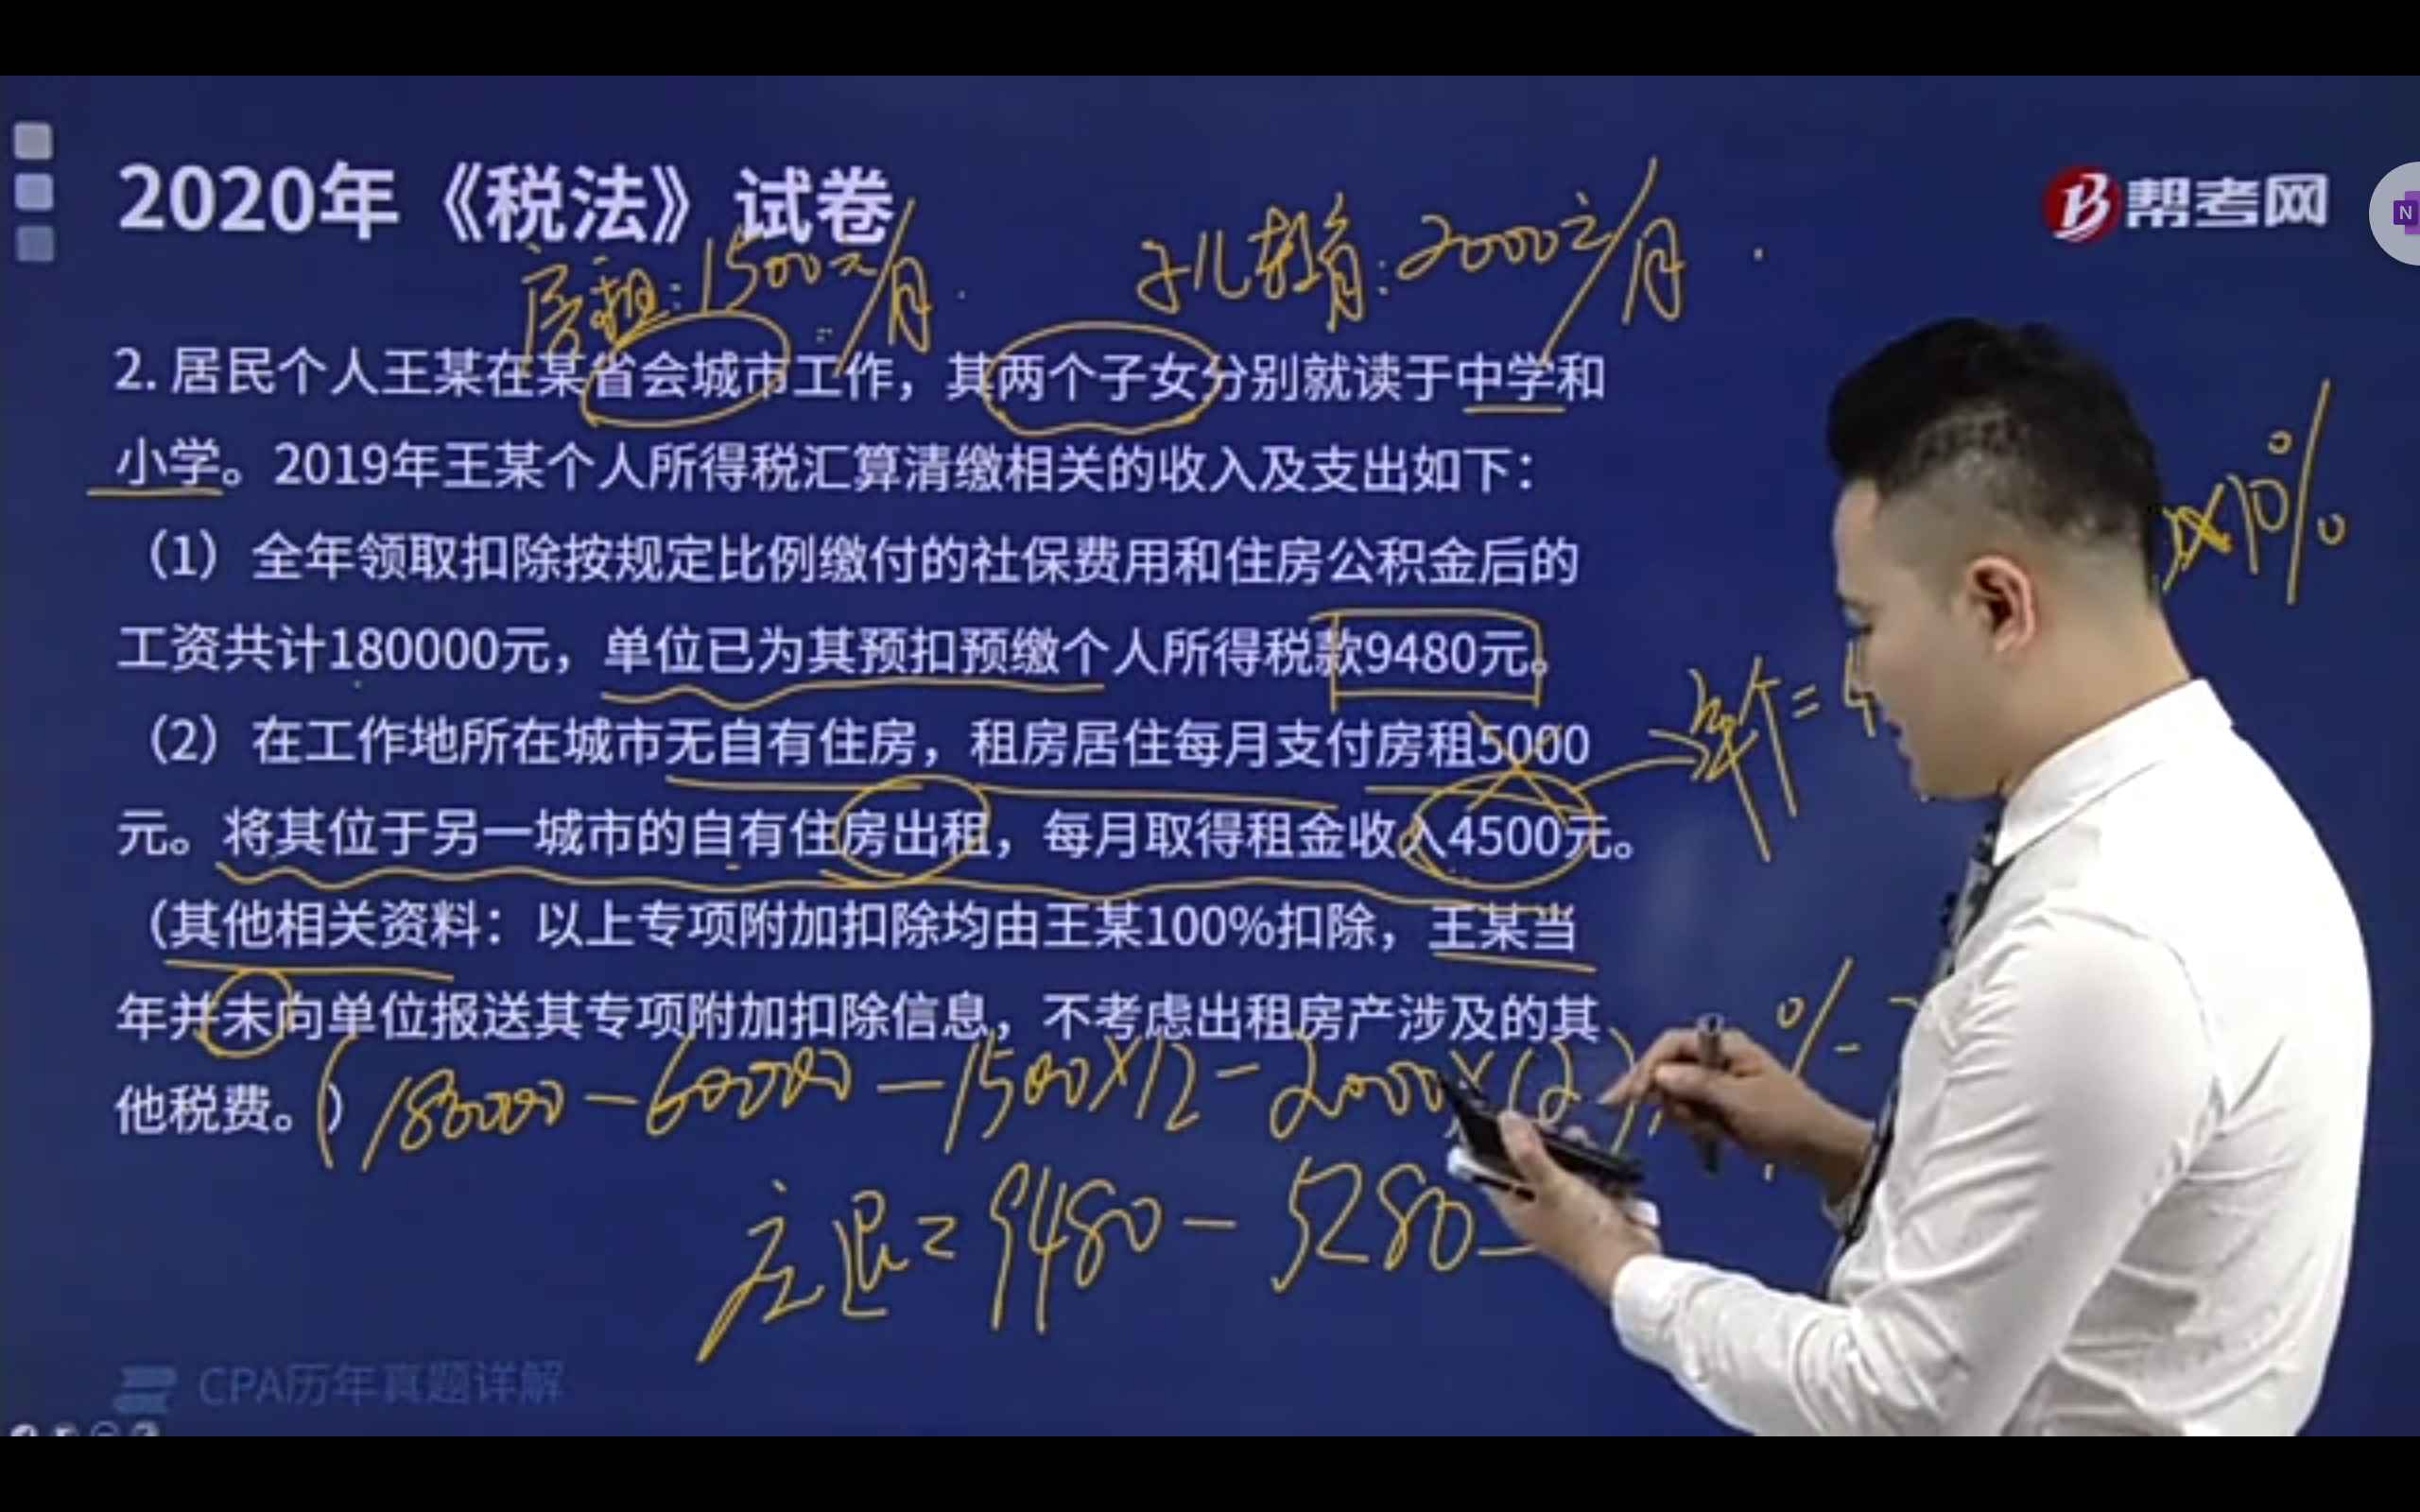 2020年《税法》试卷
帮考网
N
房租:1500元/月
子儿教育:2000元/月
2. 居民个人王某在某省会城市工作，其两个子女分别就读于中学和
小学。2019年王某个人所得税汇算清缴相关的收入及支出如下：
×10%
（1）全年领取扣除按规定比例缴付的社保费用和住房公积金后的
工资共计180000元，单位已为其预扣预缴个人所得税款9480元。
（2）在工作地所在城市无自有住房，租房居住每月支付房租5000
元。将其位于另一城市的自有住房出租，每月取得租金收入4500元。
（其他相关资料：以上专项附加扣除均由王某100%扣除，王某当
年并未向单位报送其专项附加扣除信息，不考虑出租房产涉及的其
他税费。）
(180000-60000-1500×12-2000×12)
%-
应退=9480-5280
CPA历年真题详解